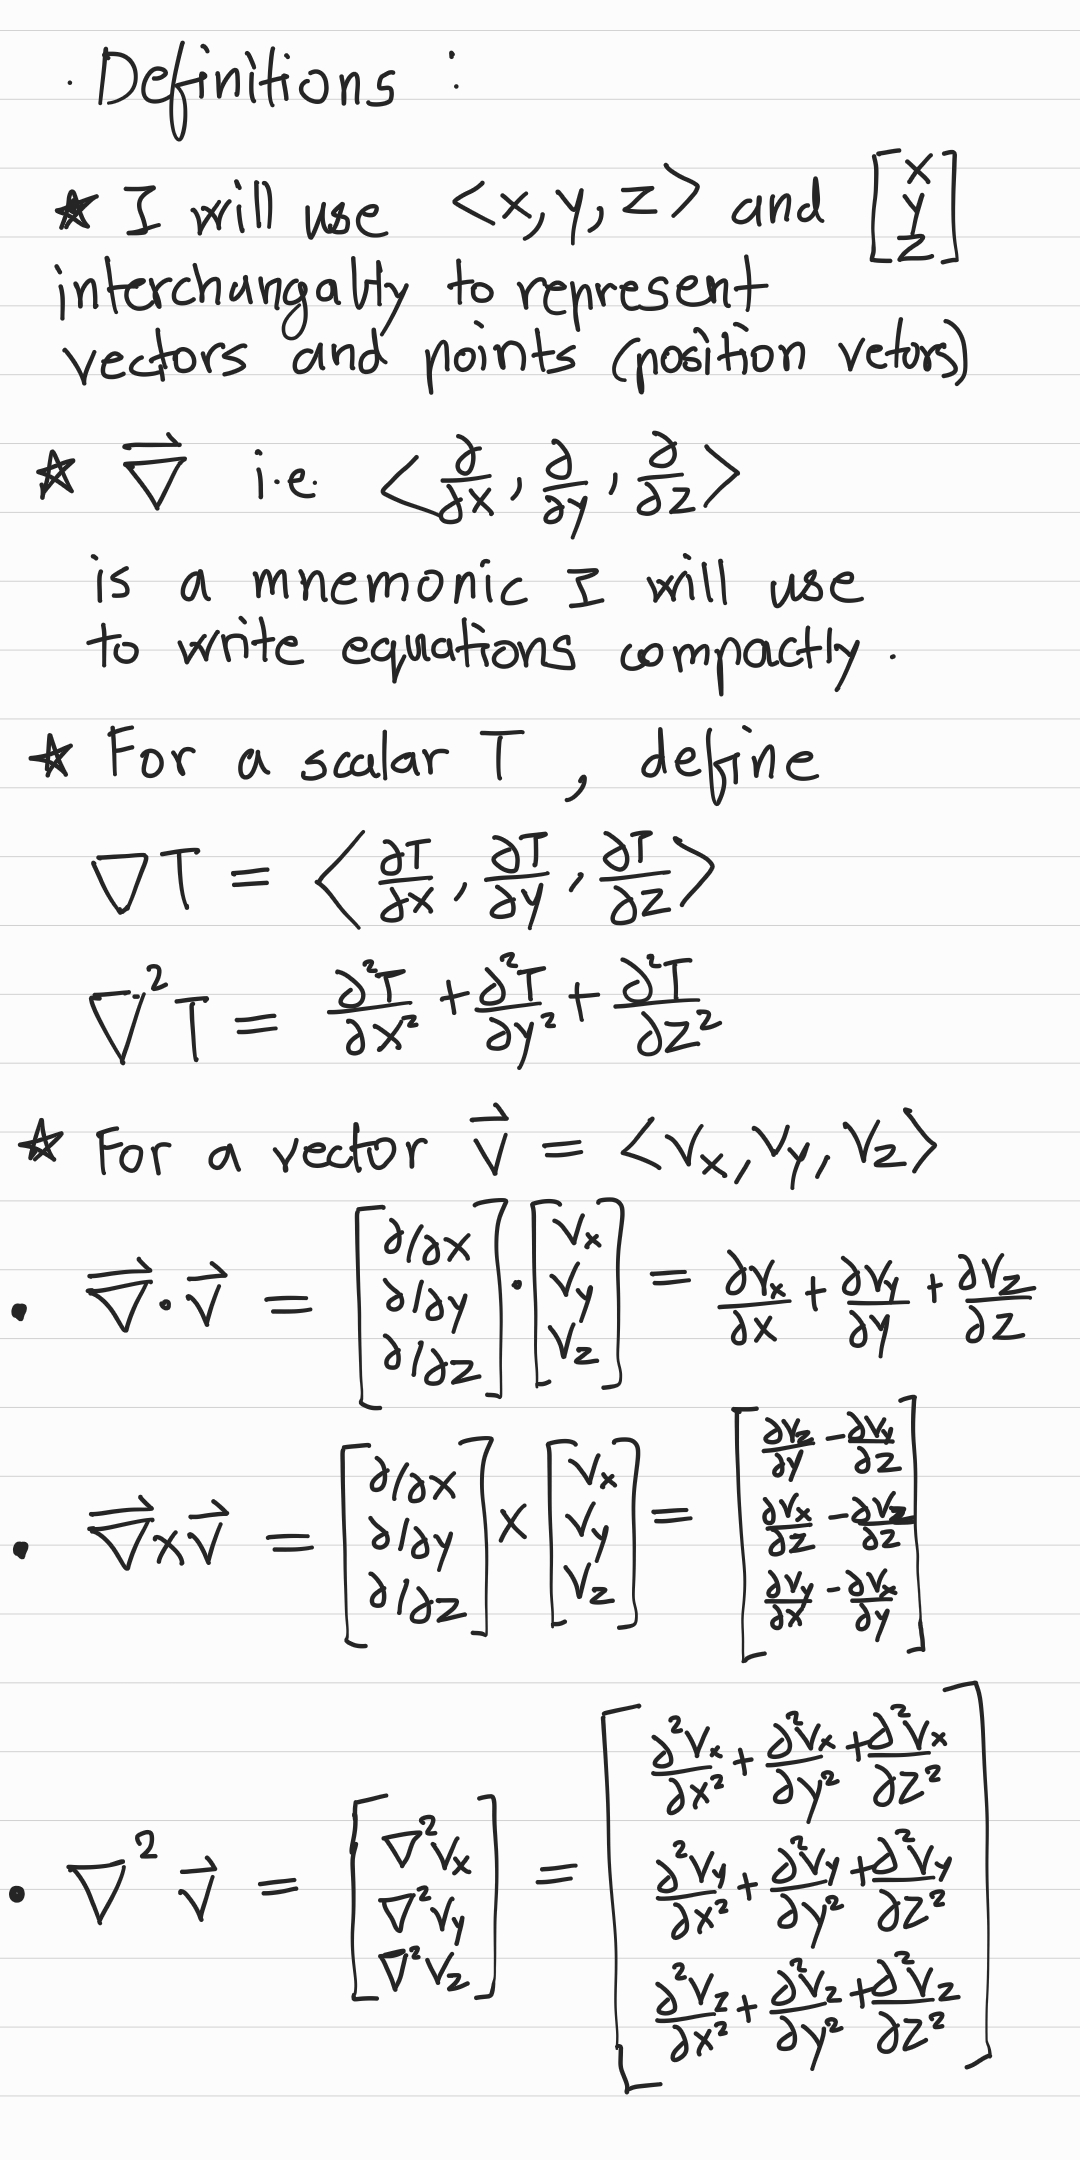 · Definitions :
☆ I will use <x, y, z> and [x y z]
interchangalty to represent
vectors and points (position vetors)
☆ ∇⃗ i.e. <∂/∂x, ∂/∂y, ∂/∂z>
is a mnemonic I will use
to write equations compactly.
☆ For a scalar T, define
∇T = <∂T/∂x, ∂T/∂y, ∂T/∂z>
∇²T = ∂²T/∂x² + ∂²T/∂y² + ∂²T/∂z²
☆ For a vector v⃗ = <Vx, Vy, Vz>
• ∇⃗·v⃗ = [∂/∂x ∂/∂y ∂/∂z] · [Vx Vy Vz] = ∂Vx/∂x + ∂Vy/∂y + ∂Vz/∂z
• ∇⃗×v⃗ = [∂/∂x ∂/∂y ∂/∂z] × [Vx Vy Vz] = [∂Vz/∂y - ∂Vy/∂z ∂Vx/∂z - ∂Vz/∂z ∂Vy/∂x - ∂Vx/∂y]
• ∇²v⃗ = [∇²Vx ∇²Vy ∇²Vz] = [∂²Vx/∂x² + ∂²Vx/∂y² + ∂²Vx/∂z² ∂²Vy/∂x² + ∂²Vy/∂y² + ∂²Vy/∂z² ∂²Vz/∂x² + ∂²Vz/∂y² + ∂²Vz/∂z²]